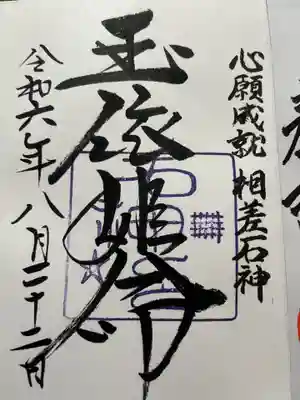 心願成就 相差石神
玉依姫命
令和六年 八月二十二日